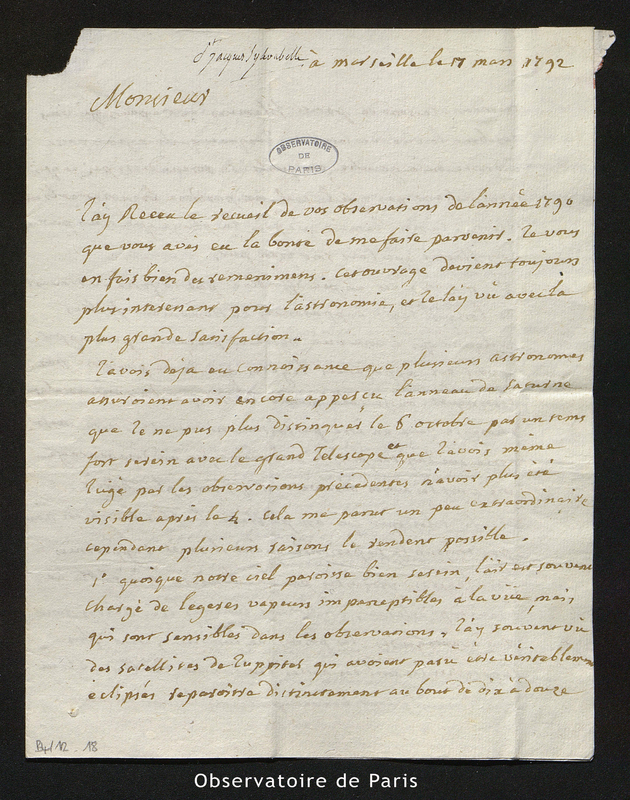 St jacques Sylvabelle
à marseille le 17 mars 1792
Monsieur
OBSERVATOIRE
DE
PARIS
J'ay Receu le recueil de vos observations de l'année 1790
que vous avés eu la bonté de me faire parvenir. Je vous
en fais bien des remerciments. Cet ouvrage devient toujours
plus interessant pour l'astronomie, et je l'ay vû avec la
plus grande satisfaction.
J'avois deja eu connoissance que plusieurs astronomes
assuroient avoir encore apperçu l'anneau de saturne
que je ne pus plus distinguer le 6 octobre par un tems
fort serein avec le grand Telescope et que j'avois même
jugé par les observations précédentes n'avoir plus été
visible après le 4. Cela me parut un peu extraordinaire
cependant plusieurs raisons le rendent possible.
1° quoique notre ciel paroisse bien serein, l'air est souvent
chargé de legeres vapeurs imperceptibles à la vüe, mais
qui sont sensibles dans les observations, j'ay souvent vû
des satellites de Juppiter qui avoient paru être véritablement
éclipsés reparoitre distinctement au bout de dix à douze
B4/12. 18
Observatoire de Paris